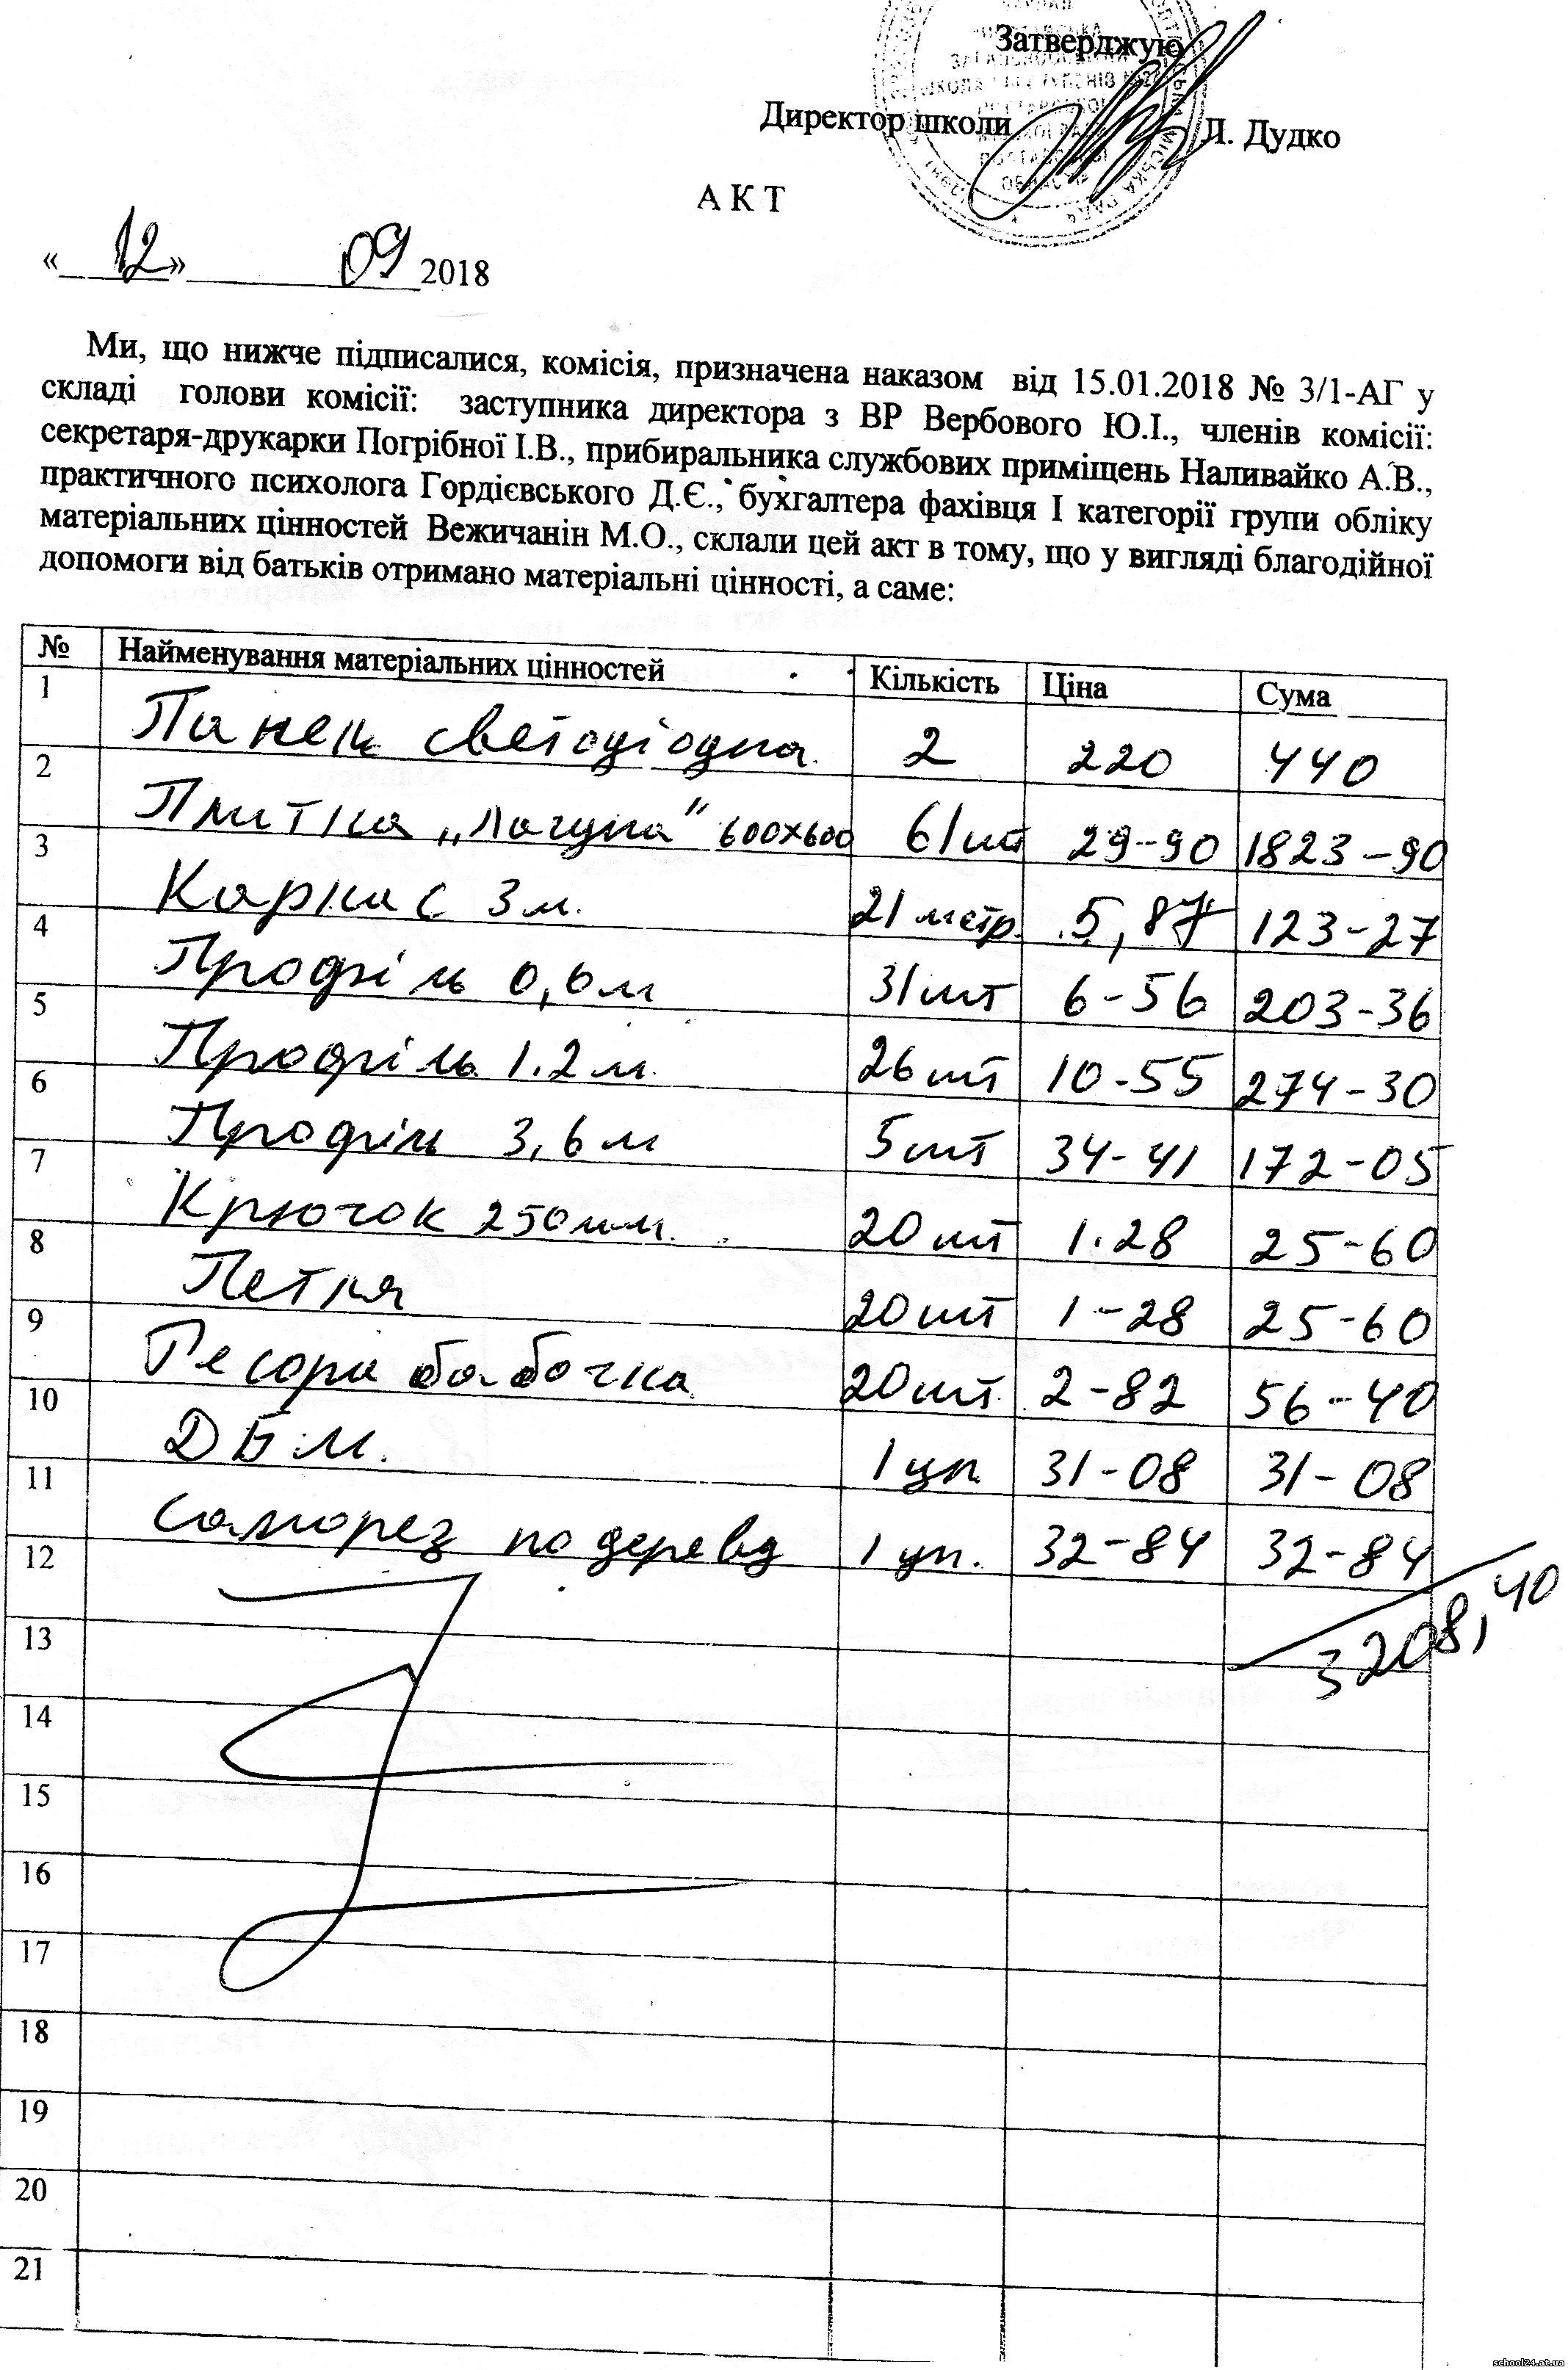 Затверджую
Директор школи Л. Дудко
А К Т
« 12 » 09 2018
Ми, що нижче підписалися, комісія, призначена наказом від 15.01.2018 № 3/1-АГ у
складі голови комісії: заступника директора з ВР Вербового Ю.І., членів комісії:
секретаря-друкарки Погрібної І.В., прибиральника службових приміщень Наливайко А.В.,
практичного психолога Гордієвського Д.Є., бухгалтера фахівця І категорії групи обліку
матеріальних цінностей Вежичанін М.О., склали цей акт в тому, що у вигляді благодійної
допомоги від батьків отримано матеріальні цінності, а саме:
№ Найменування матеріальних цінностей Кількість Ціна Сума
1 Панель светодіодна 2 220 440
2 Плитка „Лагуна" 600х600 61шт 29-90 1823-90
3 Каркас 3м. 21 метр. 5,87 123-27
4 Профіль 0,6м 31шт 6-56 203-36
5 Профіль 1.2м. 26шт 10-55 274-30
6 Профіль 3,6м 5шт 34-41 172-05
7 Крючок 250мм. 20шт 1.28 25-60
8 Петля 20шт 1-28 25-60
9 Ресора бабочка 20шт 2-82 56-40
10 ДБМ. 1 уп. 31-08 31-08
11 саморез по дереву 1 уп. 32-84 32-84
12
3208,40
13
14
15
16
17
18
19
20
21
school24.at.ua